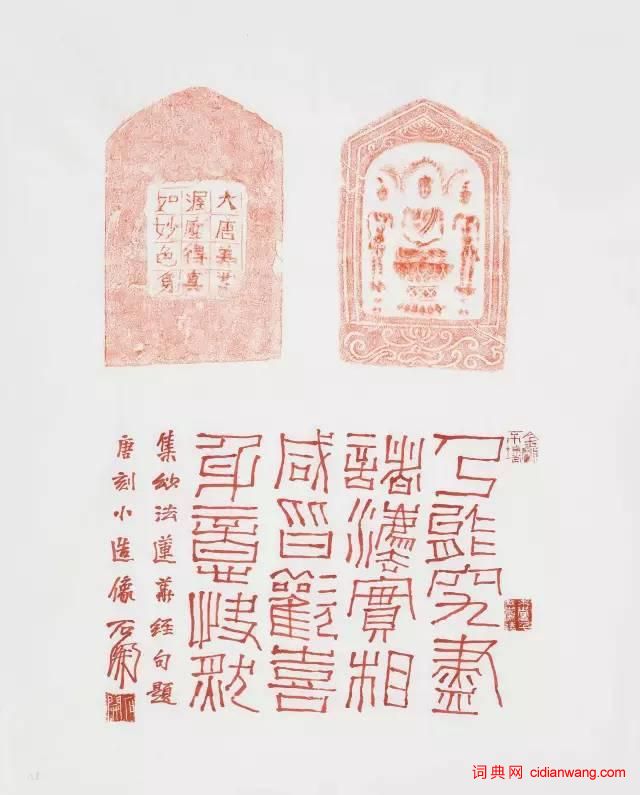 大唐善業
泥壓得真
如妙色身
金剛不壞
乃能究盡
諸灋實相
咸皆歡喜
身意快然
集妙法蓮華經句題
唐刻小造像 石開
词典网 cidianwang.com